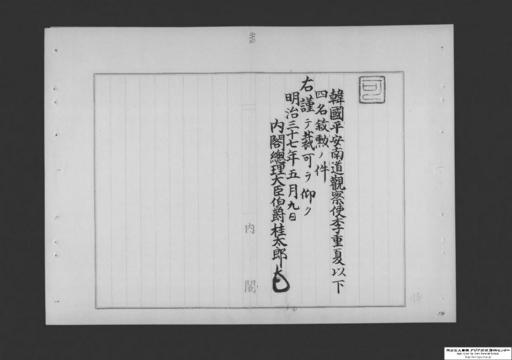 可
韓國平安南道觀察使李重夏以下
四名敍勲ノ件
右謹テ裁可ヲ仰ク
明治三十七年五月九日
内閣總理大臣伯爵桂太郎
内閣